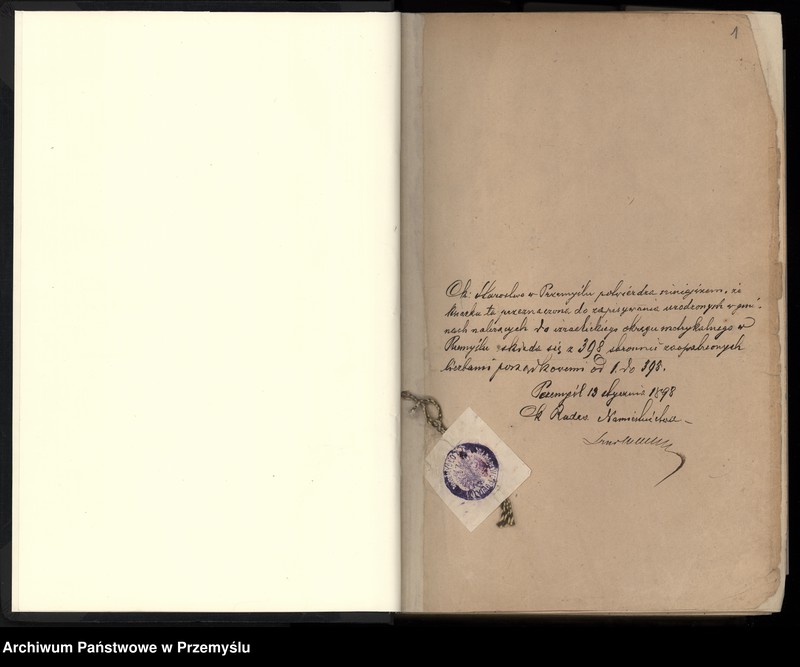 1
Ck: Starostwo w Przemyślu potwierdza niniejszem, że
książka ta przeznaczona do zapisywania urodzonych w gmi-
nach należących do izraelickiego okręgu metrykalnego w
Przemyślu składa się z 398 stronnic zaopatrzonych
liczbami porządkowemi od 1. do 398.
Przemyśl 13 stycznia 1898
Ck Radca Namiestnictwa
Archiwum Państwowe w Przemyślu